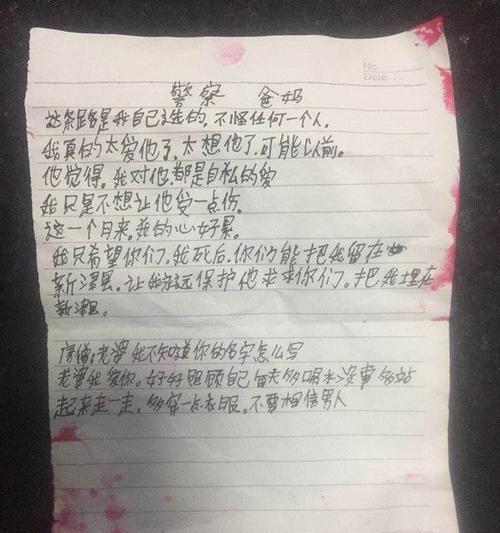 No.
Date.
警察 爸妈
这条路是我自己选的.不怪任何一个人.
我真的太爱他了.太想他了.可能以前.
他觉得.我对他.都是自私的爱
我只是不想让他受一点伤.
这一个月来.我的心好累.
我只希望你们.我死后.你们能把我留在
新津县.让我永远保护他求求你们.把我埋在
新津县.
老婆我不知道你的名字怎么写
老婆我爱你.好好照顾自己每天多喝水没事多站
起来走一走.多穿一点衣服.不要相信男人